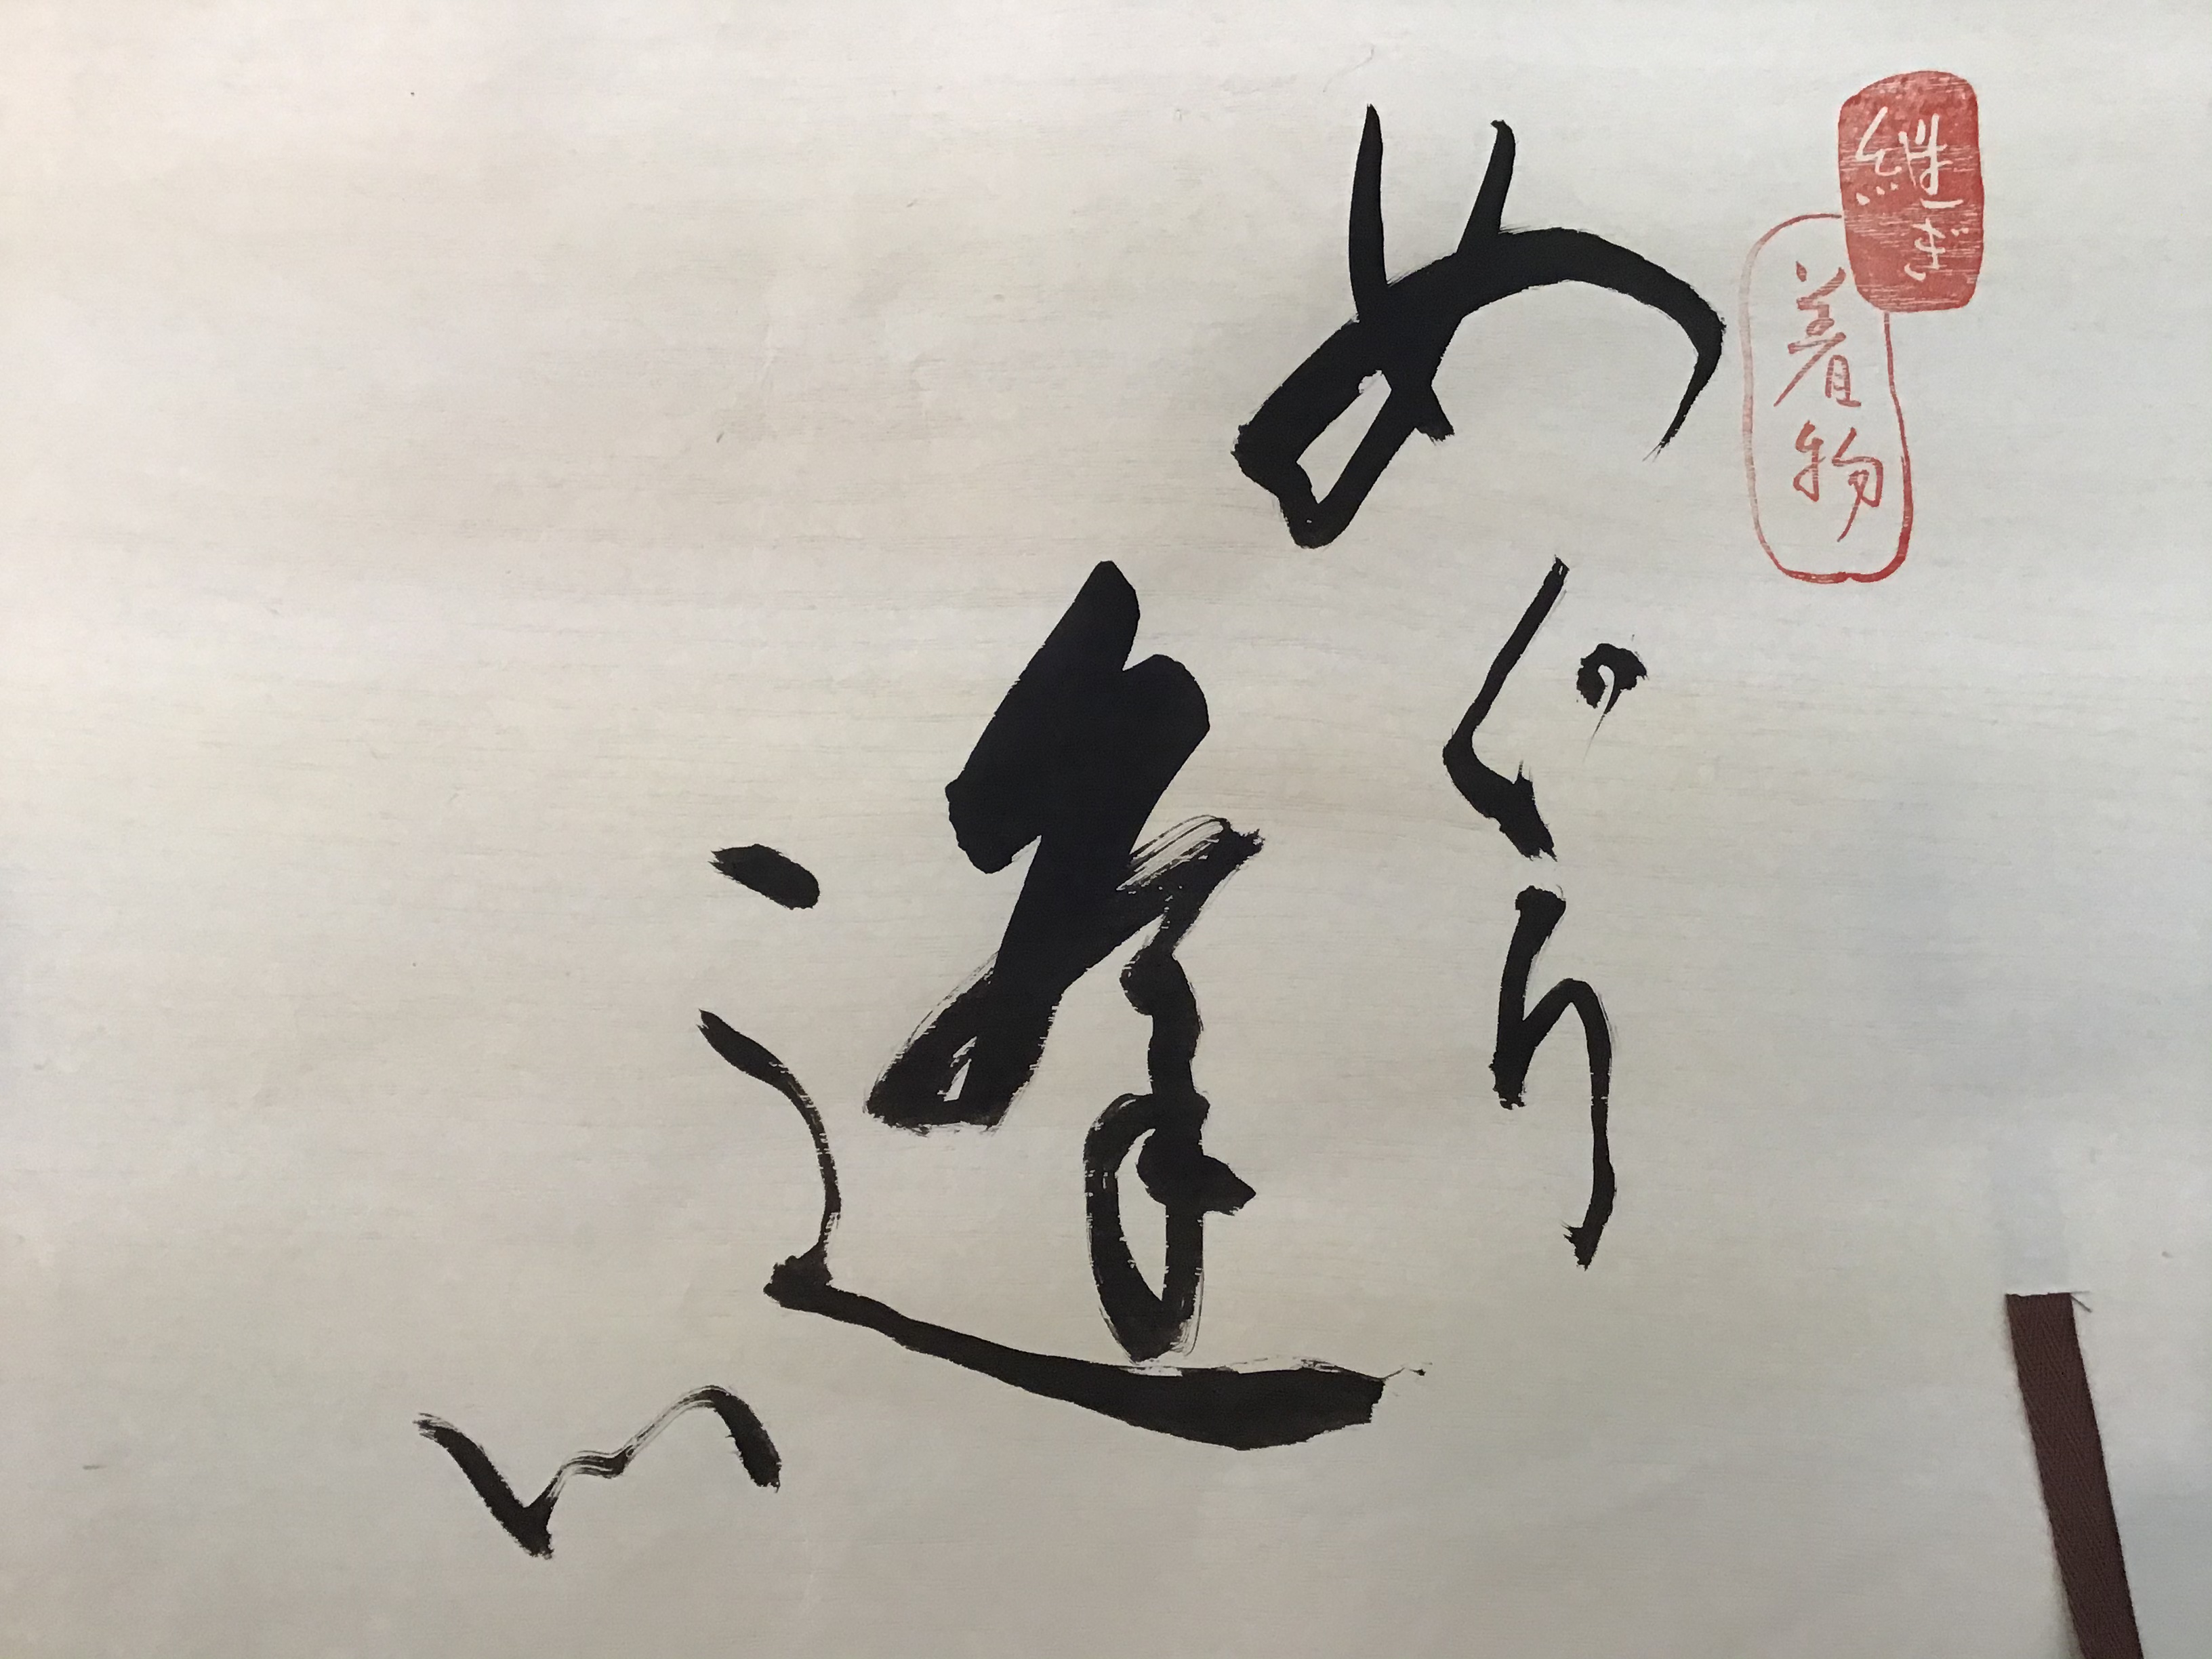 継ぎ
着物
めぐり
逢い